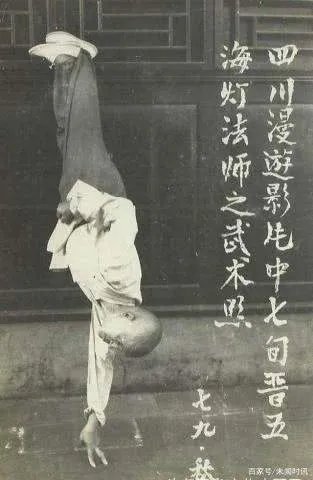 四川漫遊影片中七旬晋五
海灯法师之武术照
七九·秋
百家号/未闻时讯